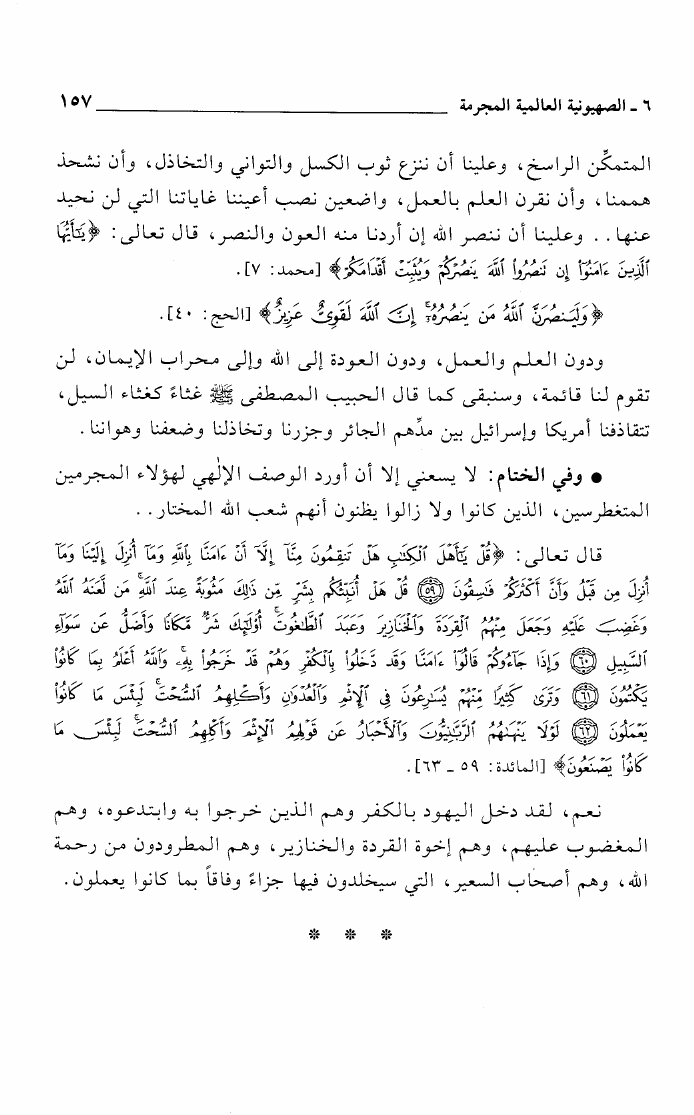 ٦ ـ الصهيونية العالمية المجرمة ١٥٧
المتمكِّن الراسخ، وعلينا أن ننزع ثوب الكسل والتواني والتخاذل، وأن نشحذ
هممنا، وأن نقرن العلم بالعمل، واضعين نصب أعيننا غاياتنا التي لن نحيد
عنها.. وعلينا أن ننصر الله إن أردنا منه العون والنصر، قال تعالى: ﴿يَٰٓأَيُّهَا
ٱلَّذِينَ ءَامَنُوٓا۟ إِن تَنصُرُوا۟ ٱللَّهَ يَنصُرْكُمْ وَيُثَبِّتْ أَقْدَامَكُمْ﴾ [محمد: ٧].
﴿وَلَيَنصُرَنَّ ٱللَّهُ مَن يَنصُرُهُۥٓ ۗ إِنَّ ٱللَّهَ لَقَوِىٌّ عَزِيزٌ﴾ [الحج: ٤٠].
ودون العلم والعمل، ودون العودة إلى الله وإلى محراب الإيمان، لن
تقوم لنا قائمة، وسنبقى كما قال الحبيب المصطفى ﷺ غثاءً كغثاء السيل،
تتقاذفنا أمريكا وإسرائيل بين مدِّهم الجائر وجزرنا وتخاذلنا وضعفنا وهواننا.
● وفي الختام: لا يسعني إلا أن أورد الوصف الإلٰهي لهؤلاء المجرمين
المتغطرسين، الذين كانوا ولا زالوا يظنون أنهم شعب الله المختار..
قال تعالى: ﴿قُلْ يَٰٓأَهْلَ ٱلْكِتَٰبِ هَلْ تَنقِمُونَ مِنَّآ إِلَّآ أَنْ ءَامَنَّا بِٱللَّهِ وَمَآ أُنزِلَ إِلَيْنَا وَمَآ
أُنزِلَ مِن قَبْلُ وَأَنَّ أَكْثَرَكُمْ فَٰسِقُونَ ﴿٥٩﴾ قُلْ هَلْ أُنَبِّئُكُم بِشَرٍّ مِّن ذَٰلِكَ مَثُوبَةً عِندَ ٱللَّهِ ۚ مَن لَّعَنَهُ ٱللَّهُ
وَغَضِبَ عَلَيْهِ وَجَعَلَ مِنْهُمُ ٱلْقِرَدَةَ وَٱلْخَنَازِيرَ وَعَبَدَ ٱلطَّٰغُوتَ ۚ أُو۟لَٰٓئِكَ شَرٌّ مَّكَانًا وَأَضَلُّ عَن سَوَآءِ
ٱلسَّبِيلِ ﴿٦٠﴾ وَإِذَا جَآءُوكُمْ قَالُوٓا۟ ءَامَنَّا وَقَد دَّخَلُوا۟ بِٱلْكُفْرِ وَهُمْ قَدْ خَرَجُوا۟ بِهِۦ ۚ وَٱللَّهُ أَعْلَمُ بِمَا كَانُوا۟
يَكْتُمُونَ ﴿٦١﴾ وَتَرَىٰ كَثِيرًا مِّنْهُمْ يُسَٰرِعُونَ فِى ٱلْإِثْمِ وَٱلْعُدْوَٰنِ وَأَكْلِهِمُ ٱلسُّحْتَ ۚ لَبِئْسَ مَا كَانُوا۟
يَعْمَلُونَ ﴿٦٢﴾ لَوْلَا يَنْهَىٰهُمُ ٱلرَّبَّٰنِيُّونَ وَٱلْأَحْبَارُ عَن قَوْلِهِمُ ٱلْإِثْمَ وَأَكْلِهِمُ ٱلسُّحْتَ ۚ لَبِئْسَ مَا
كَانُوا۟ يَصْنَعُونَ﴾ [المائدة: ٥٩ ـ ٦٣].
نعم، لقد دخل اليهود بالكفر وهم الذين خرجوا به وابتدعوه، وهم
المغضوب عليهم، وهم إخوة القردة والخنازير، وهم المطرودون من رحمة
الله، وهم أصحاب السعير، التي سيخلدون فيها جزاءً وفاقاً بما كانوا يعملون.
* * *